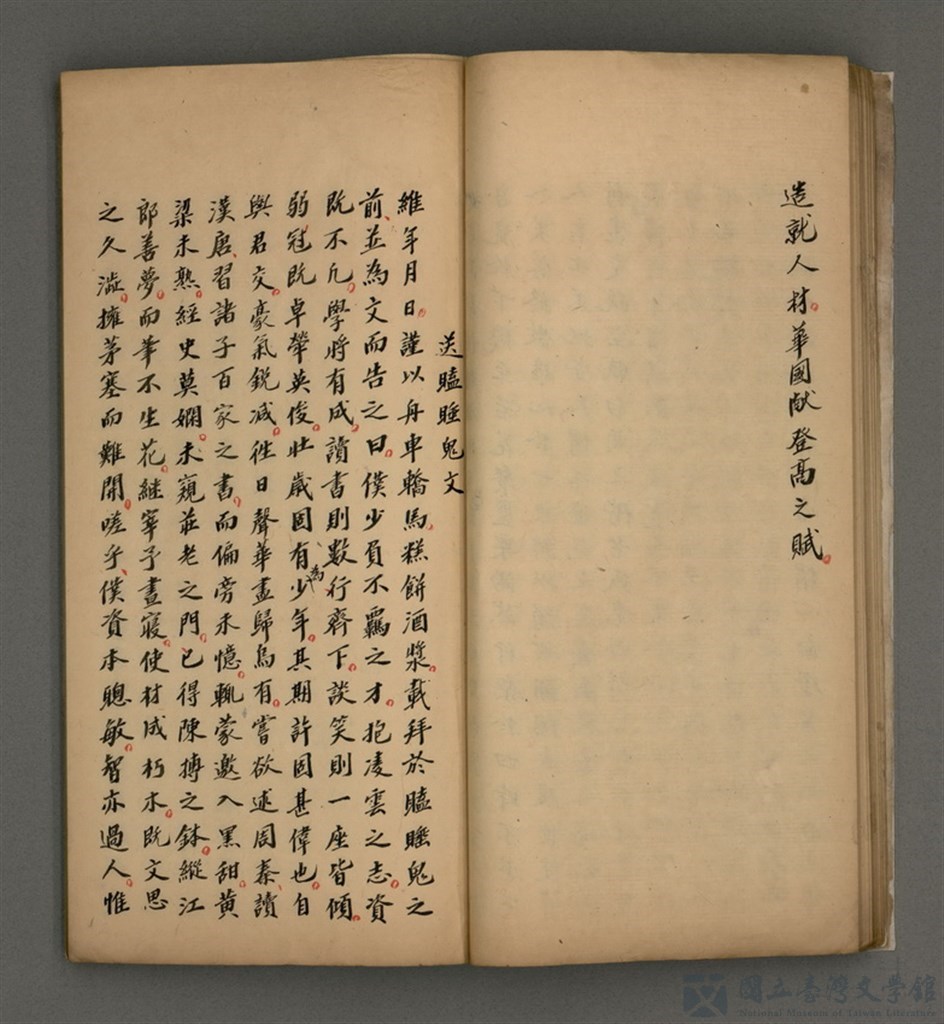 造就人材。華國献登高之賦。
送瞌睡鬼文
維年月日。謹以舟車轎馬。糕餅酒漿。載拜於瞌睡鬼之
前、並為文而告之曰。僕少負不羈之才。抱凌雲之志。資
既不凡。學將有成。讀書則數行齊下。談笑則一座皆傾。
弱冠既卓犖英俊。壯歲固有為少年。其期許固甚偉也。自
與君交。豪氣銳减。徃日聲華盡歸烏有。嘗欲述周秦、讀
漢唐、習諸子百家之書。而偏旁未憶。輒蒙邀入黑甜。黄
粱未熟。經史莫嫻。未窺莊老之門。已得陳摶之鉢。縱江
郎善夢。而筆不生花。継宰予晝寢。使材成朽木。既文思
之久澁。擁茅塞而難開。嗟乎、僕資本聰敏。智亦過人。惟
國立臺灣文學館
National Museum of Taiwan Literature